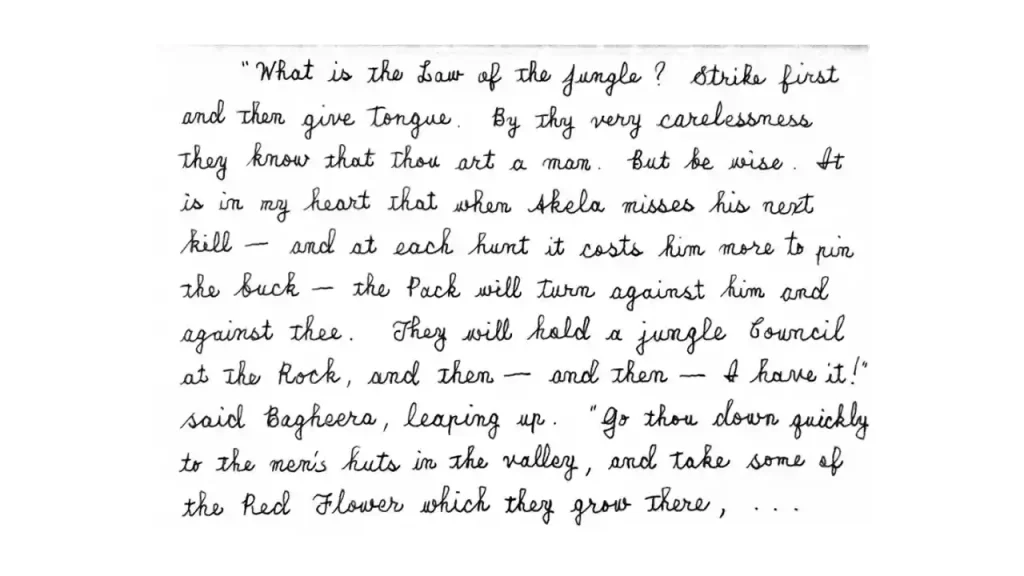 "What is the Law of the Jungle? Strike first
and then give tongue. By thy very carelessness
they know that thou art a man. But be wise. It
is in my heart that when Akela misses his next
kill — and at each hunt it costs him more to pin
the buck — the Pack will turn against him and
against thee. They will hold a jungle Council
at the Rock, and then — and then — I have it!"
said Bagheera, leaping up. "Go thou down quickly
to the men's huts in the valley, and take some of
the Red Flower which they grow there, ...